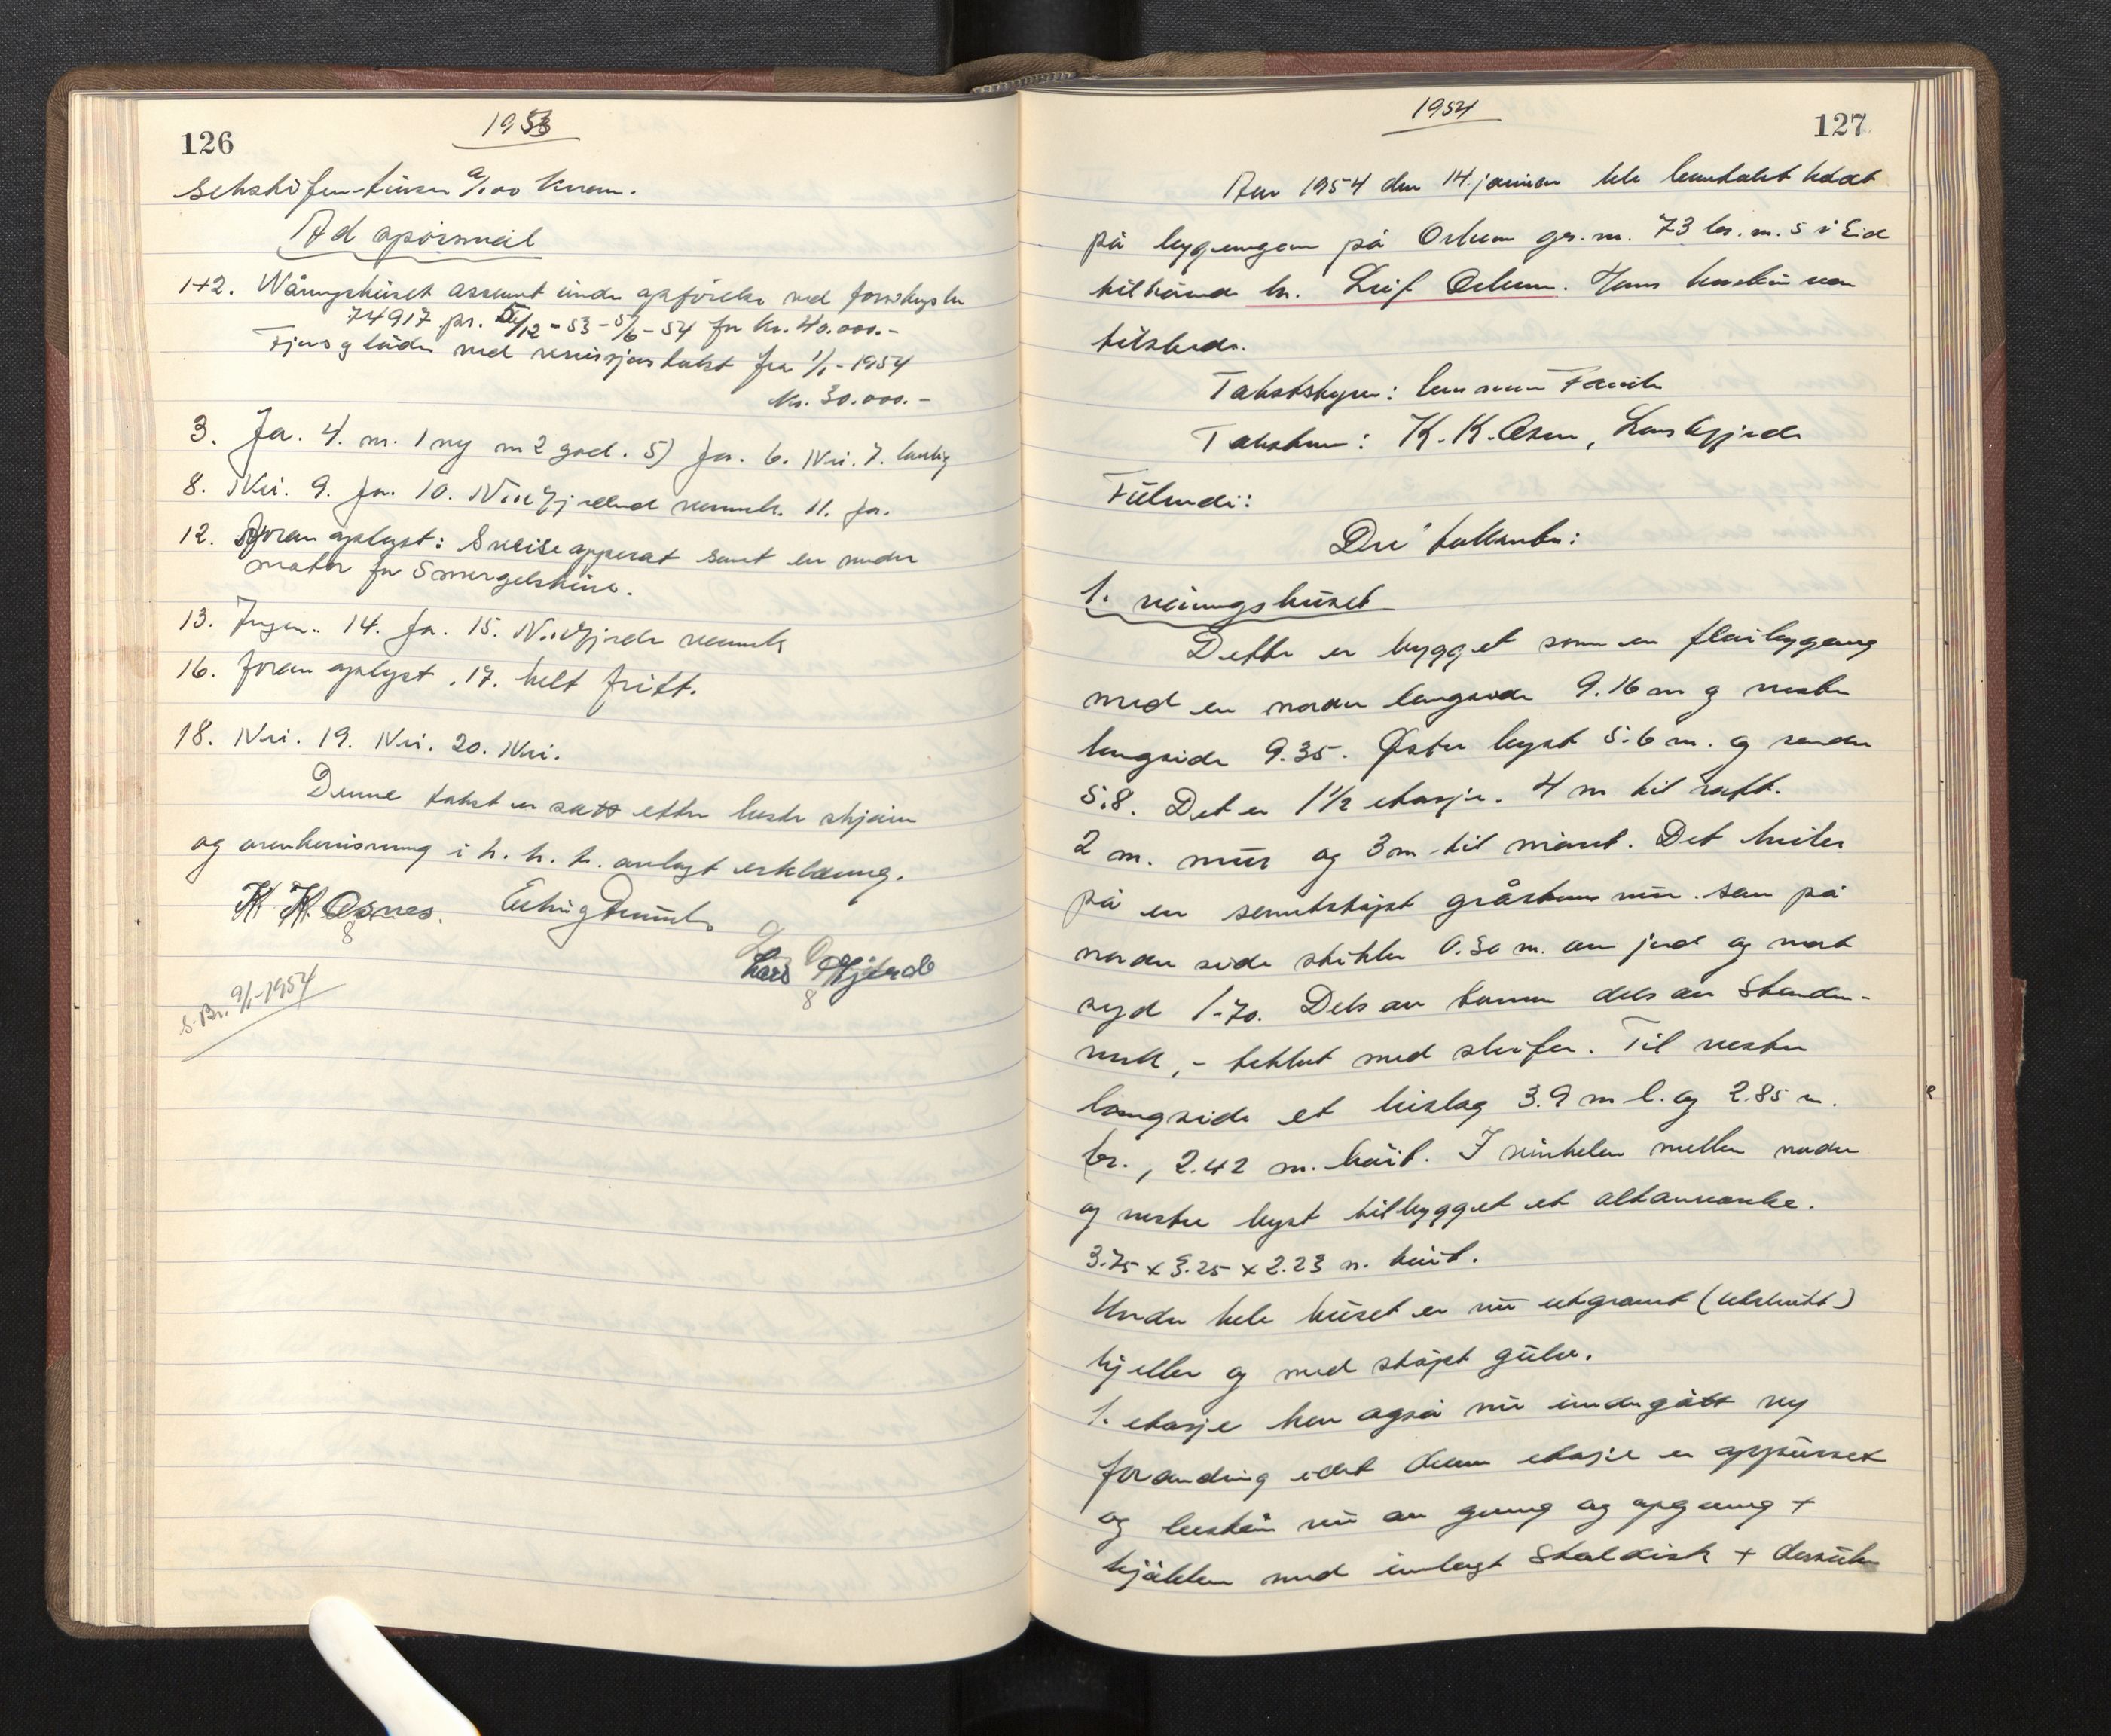 126
1953
sekshöfen-tusen 0/100 Kroner.
Ad spörsmål
1+2. Våningshuset assurert under opförelse ved forsikrings br
74917 pr. 5/12-53-5/6-54 for kr. 40.000.-
Fjøs og löde ved revisjonstakst fra 1/1-1954
kr. 30.000.-
3. Ja. 4. nr. 1 ny nr 2 god. 5) Ja. 6. Nei. 7. landbr
8. Nei. 9. Ja. 10. Nei Gjeldende ovennevnte. 11. Ja.
12. Foran oplyst: Sveiseapparat samt en mindre
motor for Smergelskive.
13. Ingen. 14. Ja. 15. Nei Gjerde
16. foran oplyst. 17. helt fritt.
18. Nei. 19. Nei. 20. Nei.
Denne takst er satt efter beste skjönn
og overbevisning i h. h. t. avlagt erklæring.
K. K. Osnes. Erling
Lars Gjerde
S. Br. 9/1-1954
1954
127
Aar 1954 den 14. januar ble branntakst holdt
på bygningen på Orheim gr. nr. 73 br. nr. 5 i Eid
tilhörende hr. Leif Orheim. Hans hustru var
tilstede.
Takstbestyrer: lensmann
Takstmenn: K. K. Osnes, Lars Gjerde
Fullmakt:
Det takseres:
1. våningshuset
Dette er bygget som en flåbygning
med en nordre langside 9.16 m og vestre
langside 9.35. Østre bryst 5.6 m. og søndre
5.8. Det er 1½ etasje. 4 m til raft.
2 m. mur og 3 m til mönet. Det hviler
på en sementstöpt gråsteins mur som på
nordre side stikker 0.30 m. av jord og mot
syd 1.70. Dels av tömmer dels av Stender-
verk, - tekket med skifer. Til vestre
langside et bislag 3.9 m l. og 2.85 m.
br., 2.42 m. höit. I vinkelen mellem nordre
og vestre bryst tilbygget et altanværelse.
3.75 x 3.25 x 2.23 m. höit.
Under hele huset er nu utgravet (utskutt)
kjeller og med stöpt gulv.
1. etasje har også nu undergått ny
forandring idet denne etasje er oppusset
og består nu av gang og opgang +
kjökken med innlagt Staldisk + dessuten